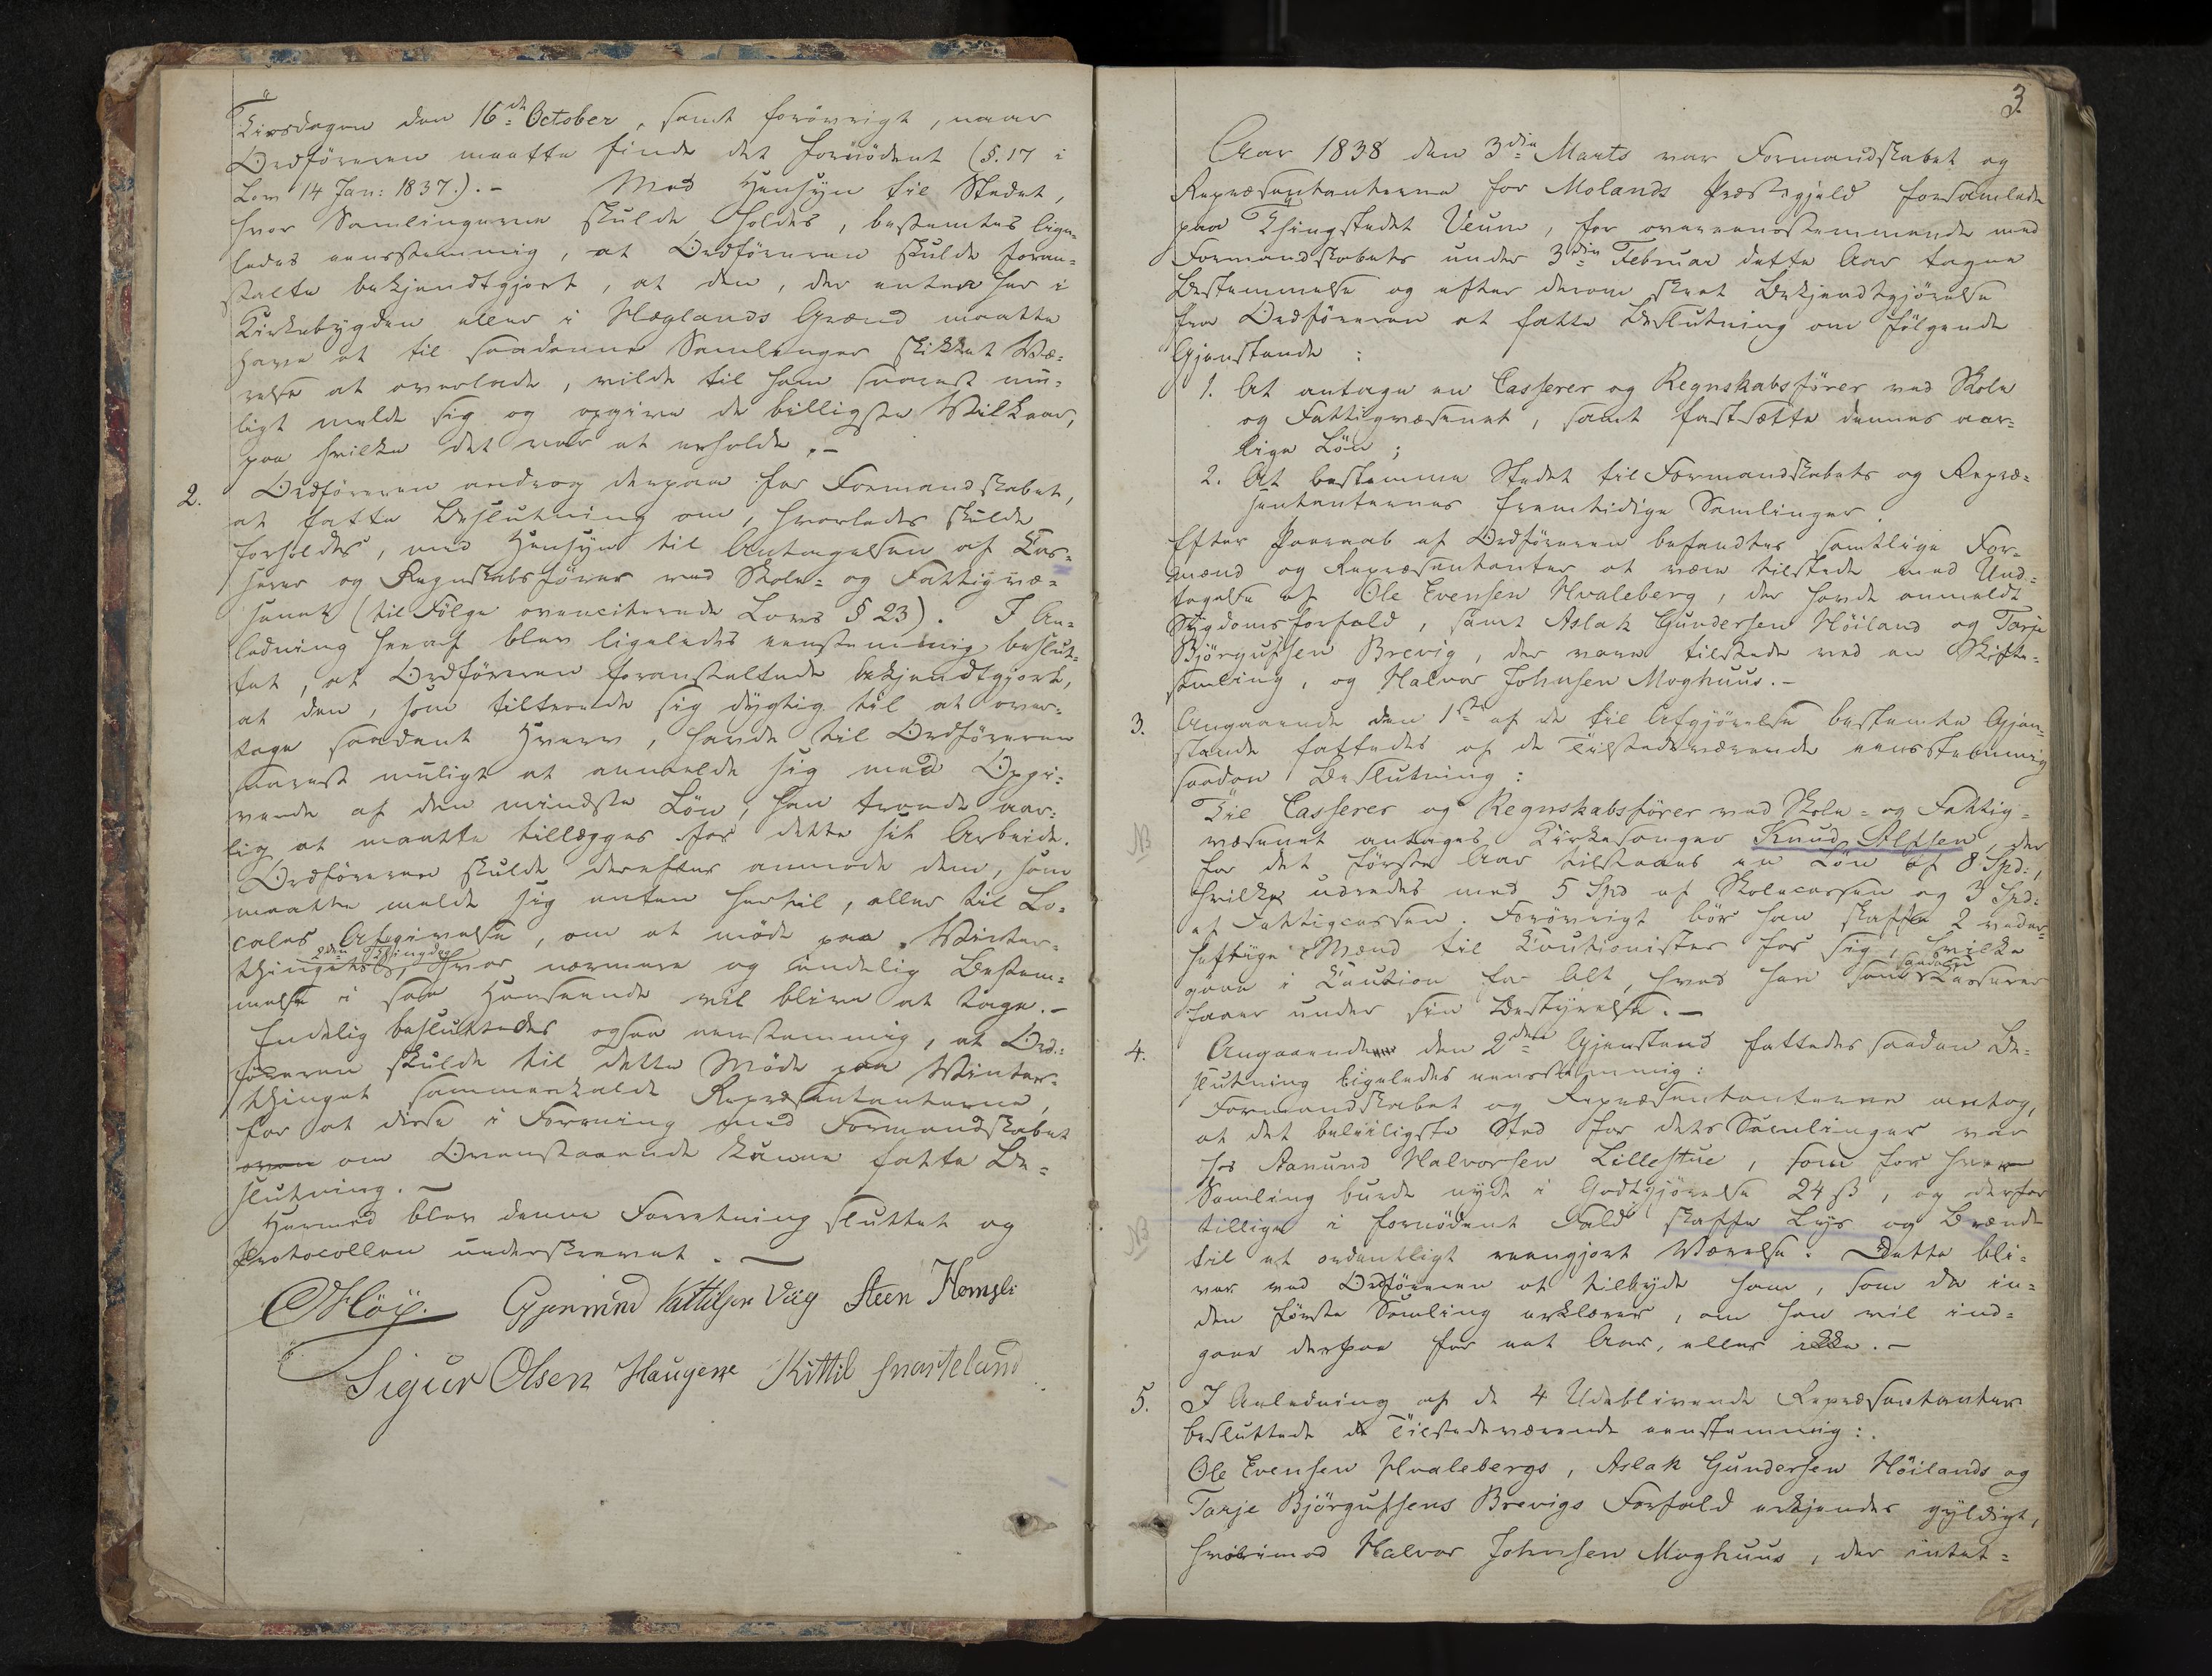 Tirsdagen den 16de October, samt forövrigt, naar
Ordföreren maatte finde det fornödent (§. 17 i
Lov 14 Jan: 1837.). – Med Hensyn til Stedet,
hvor Samlingerne skulde holdes, bestemtes lige-
ledes eensstemmig, at Ordföreren skulde foran-
stalte bekjendtgjort, at den, der enten her i
Kirkebygden eller i Høglands Grænd maatte
have et til saadanne Samlinger skikket Væ-
relse at overlade, vilde til ham snarest mu-
ligt melde sig og opgive de billigste Vilkaar,
paa hvilke det var at erholde. –
2. Ordföreren androg derpaa for Formandskabet,
at fatte Beslutning om, hvorledes skulde
forholdes, med Hensyn til Antagelsen af Cas-
serer og Regnskabsförer ved Skole- og Fattigvæ-
senet (til Fölge ovenciterede Lovs § 23). I An-
ledning heraf blev ligeledes eenstemmig beslut-
tet, at Ordföreren foranstaltede bekjendtgjort,
at den, som tiltroede sig dygtig til at over-
tage saadant Hverv, havde til Ordföreren
snarest muligt at anmelde sig med Opgi-
vende af den mindste Lön, han troede aar-
lig at maatte tillægges for dette sit Arbeide.
Ordföreren skulde derefter anmode dem, som
maatte melde sig enten hertil, eller til Lo-
cales Afgivelse, om at møde paa Winter-
thingets 2den Thingdag, hvor nærmere og endelig Bestem-
melse i saa Henseende vil blive at tage. –
Endelig besluttedes ogsaa eenstemmig, at Ord-
föreren skulde til dette Möde paa Winter-
thinget sammenkalde Repræsentanterne,
for at disse i Forening med Formandskabet
oven om Ovenstaaende kunne fatte Be-
slutning. –
Hermed blev denne Forretning sluttet og
Protocollen underskrevet. –
Høÿ. Gjermund Kittilsen Viig Steen Homsli
Sigur Olsen Haugene Kittil Snarteland
3.
Aar 1838 den 3die Marts var Formandskabet og
Repræsentanterne for Molands Præstegjeld forsamlede
paa Thingstedet Veum, for overeensstemmende med
Formandskabets under 3die Februar dette Aar tagne
Bestemmelse og efter derom skeet Bekjendtgjörelse
fra Ordföreren at fatte Beslutning om fölgende
Gjenstande:
1. At antage en Casserer og Regnskabsförer ved Skole
og Fattigvæsenet, samt fastsætte dennes aar-
lige Lön;
2. At bestemme Stedet til Formandskabets og Repræ-
sentanternes fremtidige Samlinger.
Efter Paaraab af Ordföreren befandtes samtlige For-
mænd og Repræsentanter at være tilstede med Und-
tagelse af Ole Evensen Hvaleberg, der havde anmeldt
Sygdomsforfald, samt Aslak Gundersen Höiland og Tarje
Björgufsen Brevig, der vare tilstede ved en Skifte-
samling, og Halvor Johnsen Moghuus. –
3. Angaaende den 1ste af de til Afgjörelse bestemte Gjen-
stande fattedes af de Tilstedeværende eensstemmig
saadan Beslutning:
Til Casserer og Regnskabsförer ved Skole- og Fattig-
NB væsenet antages Kirkesanger Knud Alfsen, der
for det förste Aar tilstaaes en Lön af 8 Spd:,
hvilke udredes med 5 Spd af Skolecassen og 3 Spd:
af Fattigcassen. Forövrigt bör han skaffe 2 veder-
heftige Mænd til Cautionister for sig, hvilke
gaae i Caution for Alt, hvad han som saadan Casserer
faaer under sin Bestyrelse. –
4. Angaaende den 2den Gjenstand fattedes saadan Be-
slutning ligeledes eensstemmig:
Formandskabet og Repræsentanterne antog,
at det beleiligste Sted for dets Samlinger var
hos Aanund Halvorsen Lillestue, som for hver
Samling burde nyde i Godtgjörelse 24 ß, og derfor
NB tillige i fornödent Fald skaffe Lys og Brænde
til et ordentligt reengjort Værelse. Dette bli-
ver ved Ordföreren at tilbyde ham, som da in-
den förste Samling erklærer, om han vil ind-
gaae derpaa for eet Aar, eller ikke. –
5. I Anledning af de 4 Udeblivende Repræsentanter
besluttede de Tilstedeværende eenstemmig:
Ole Evensen Hvalebergs, Aslak Gundersen Höilands og
Tarje Björgufsens Brevigs Forfald erkjendes gyldigt,
hvorimod Halvor Johnsen Moghuus, der intet-